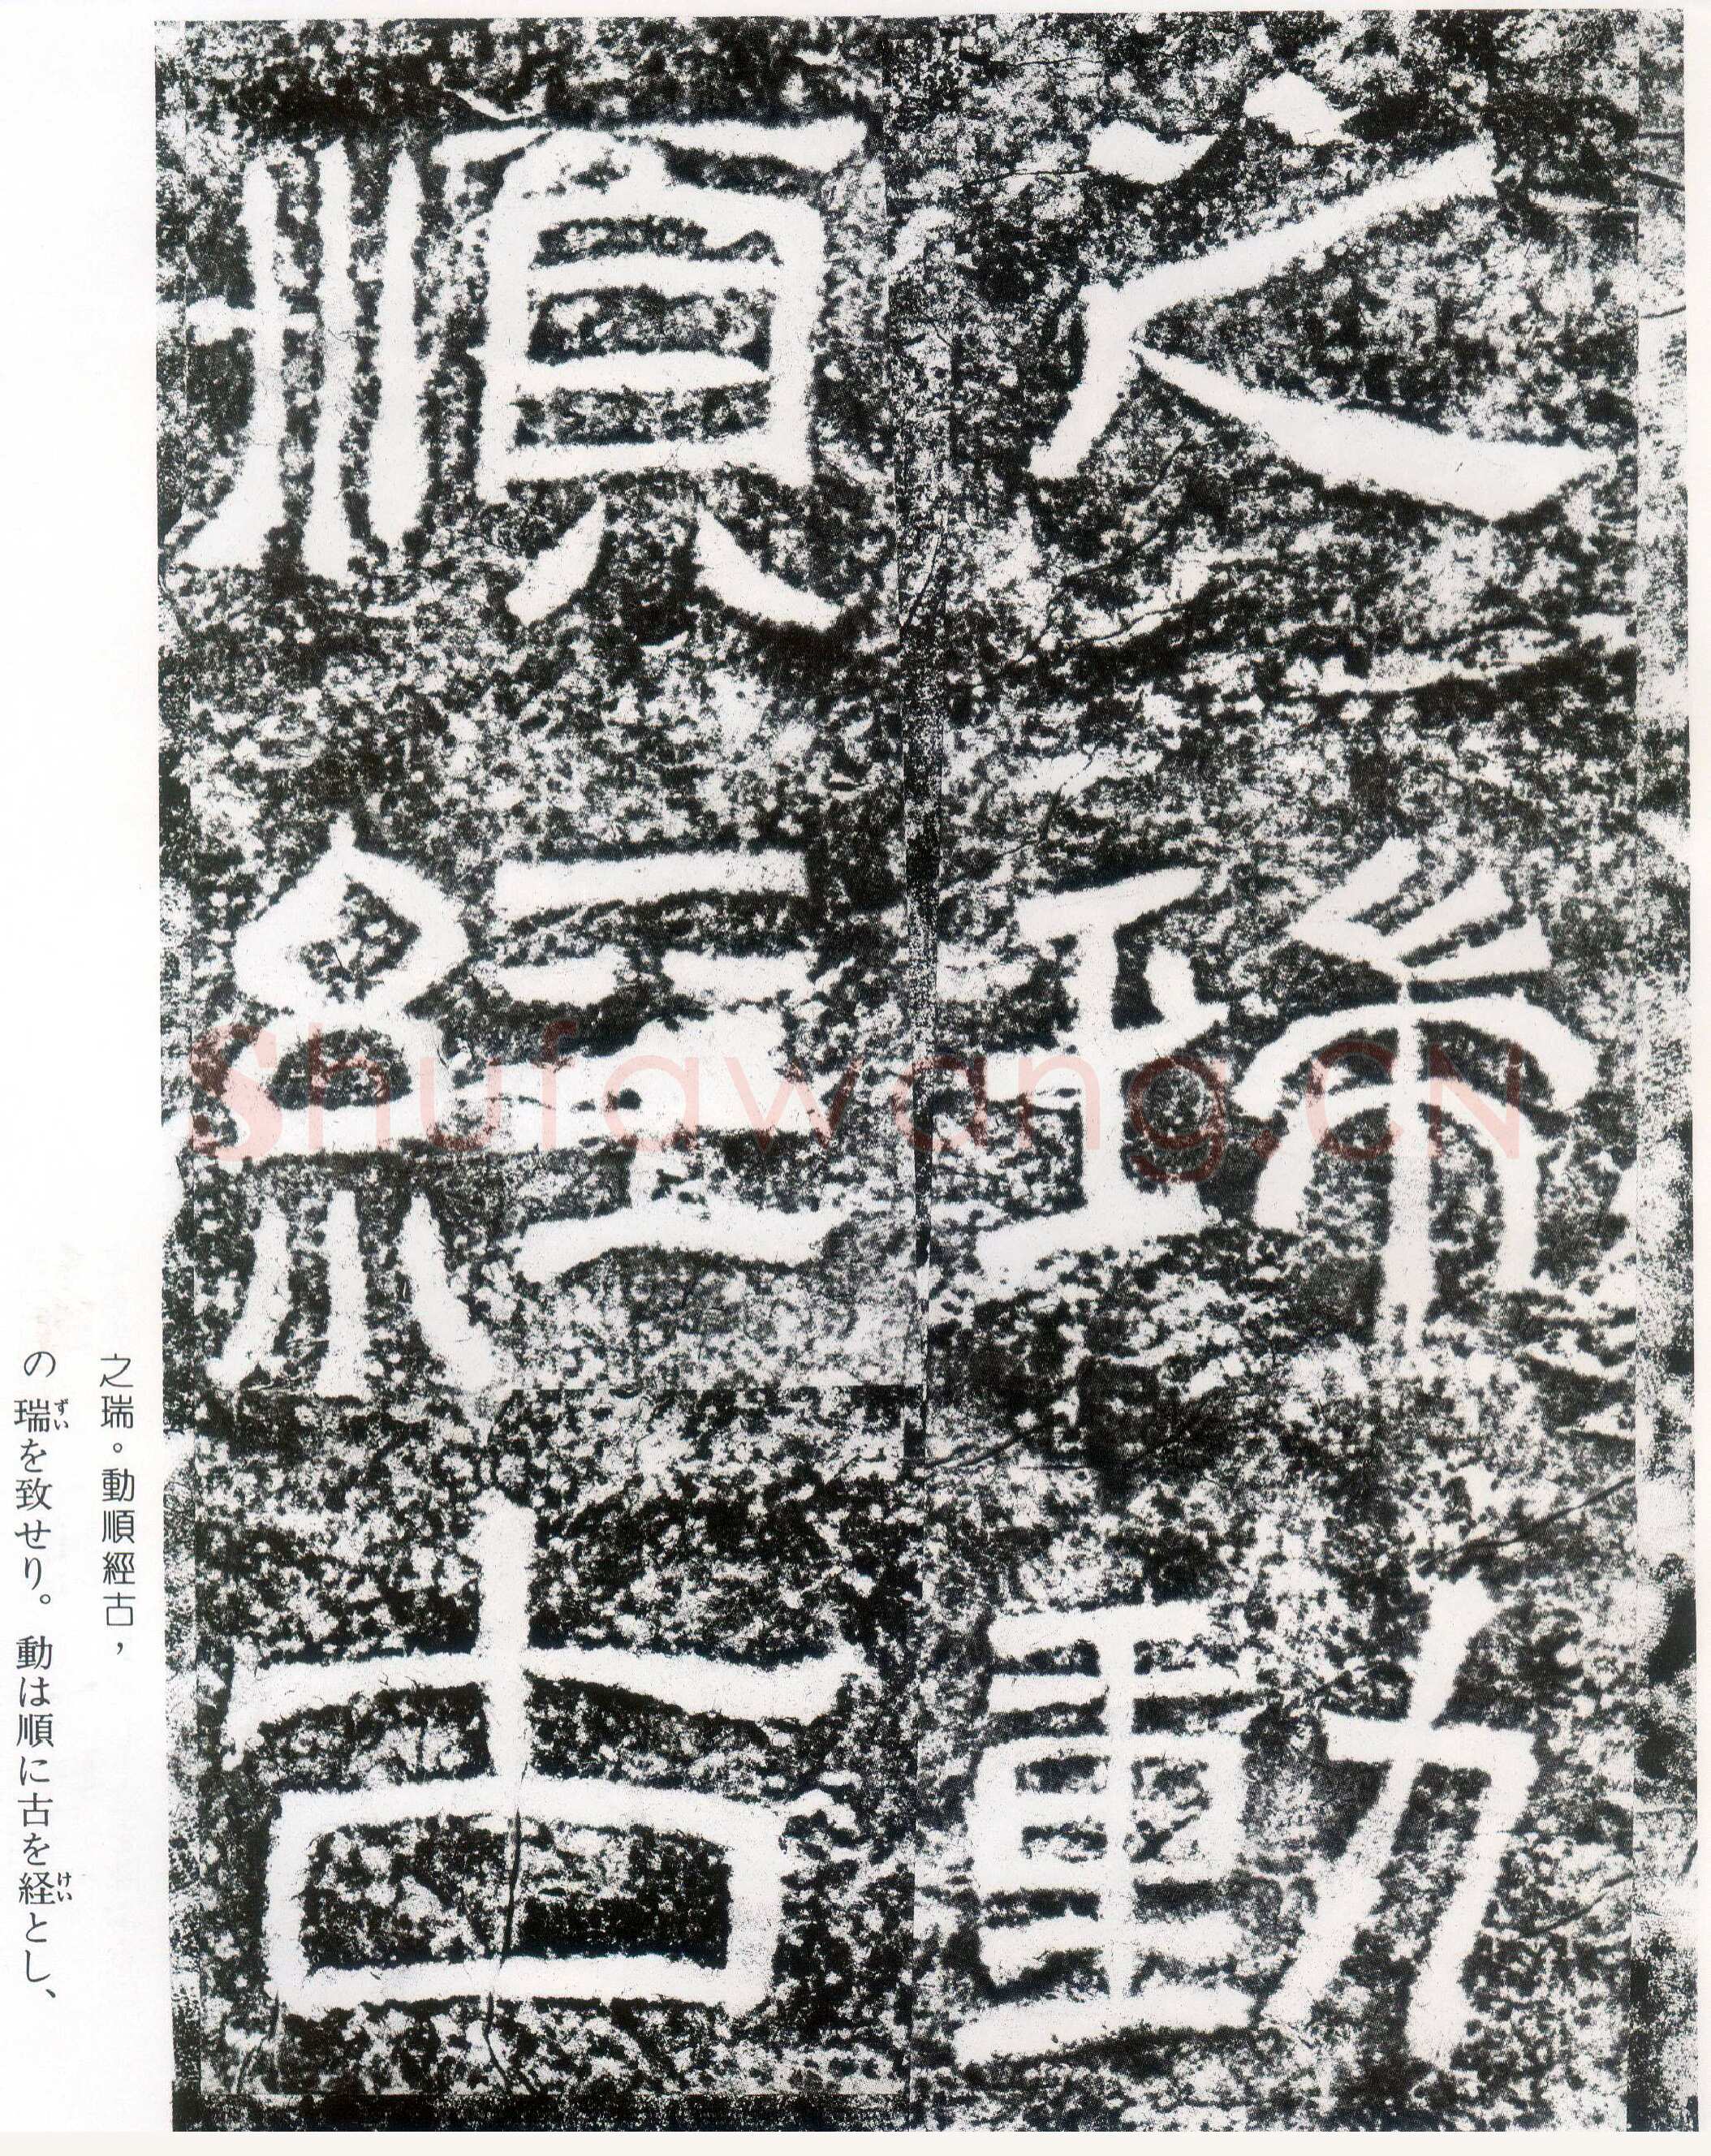 之瑞動
順經古
之瑞。動順經古，
の瑞を致せり。動は順に古を経とし、
ずい
けい
Shufawang.CN